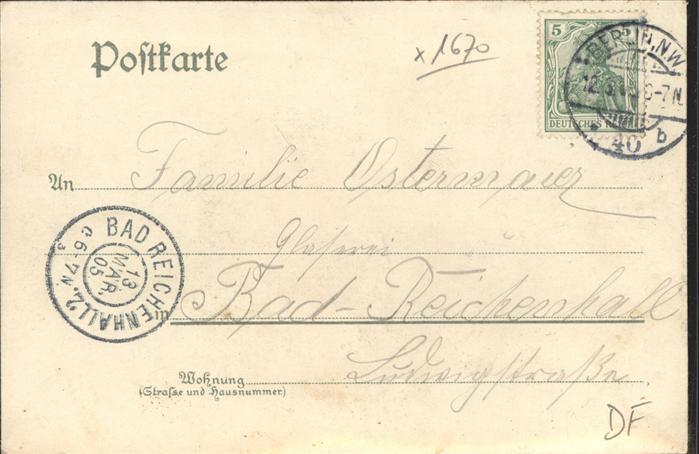 Postkarte
x 1670
5 5
DEUTSCHES
BERLIN, N.W.
12.3. 6-7N.
40 b
An Familie Ostermaier
Glaserei
in Bad-Reichenhall
Wohnung Ludwigstraße
(Strasse und Hausnummer)
BAD REICHENHALL 2.
13
MAR.
05
6-7N
DF